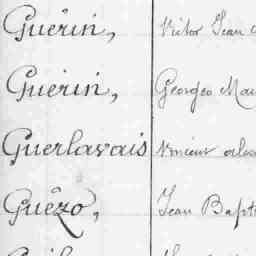 Guérin, Victor Jean
Guérin, Georges
Guerlavais Vincent
Guézo, Jean Bapt